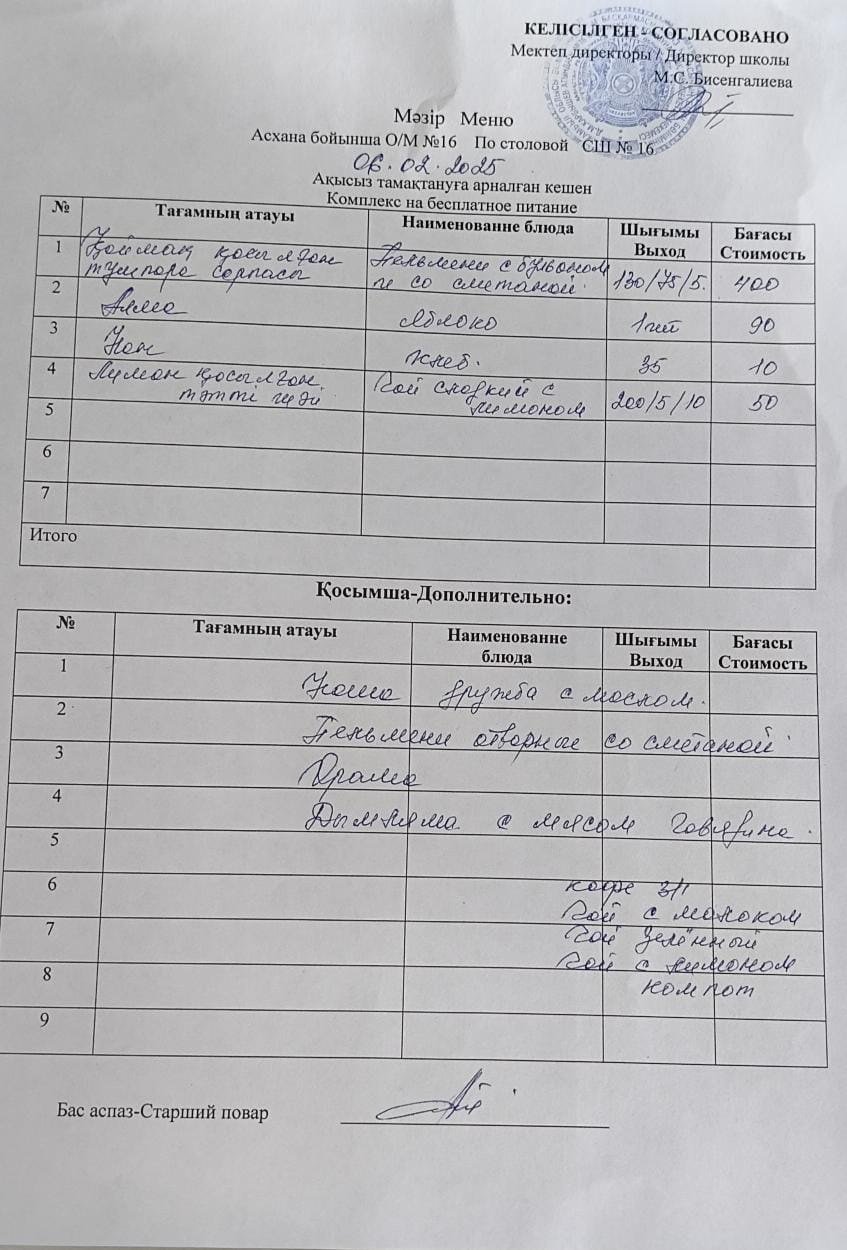 КЕЛІСІЛГЕН - СОГЛАСОВАНО
Мектеп директоры / Директор школы
М.С. Бисенгалиева
Мәзір Меню
Асхана бойынша О/М №16 По столовой СШ № 16
06.02.2025
Ақысыз тамақтануға арналған кешен
Комплекс на бесплатное питание
№ Тағамның атауы Наименование блюда Шығымы Выход Бағасы Стоимость
1 Қаймақ қосылған тұшпара сорпасы Пельмени с бульоном и со сметаной. 130/75/5. 400
2 Алма Яблоко 1шт 90
3 Нан хлеб. 35 10
4 Лимон қосылған тәтті шәй Чай сладкий с лимоном 200/5/10 50
5
6
7
Итого
Қосымша-Дополнительно:
№ Тағамның атауы Наименование блюда Шығымы Выход Бағасы Стоимость
1 Каша дружба с маслом.
2 Пельмени отварные со сметаной
3 Орама
4 Дымляма с мясом говядина.
5
6 кофе 3/1
Чай с молоком
7 Чай зелённый
Чай с лимоном
8 компот
9
Бас аспаз-Старший повар